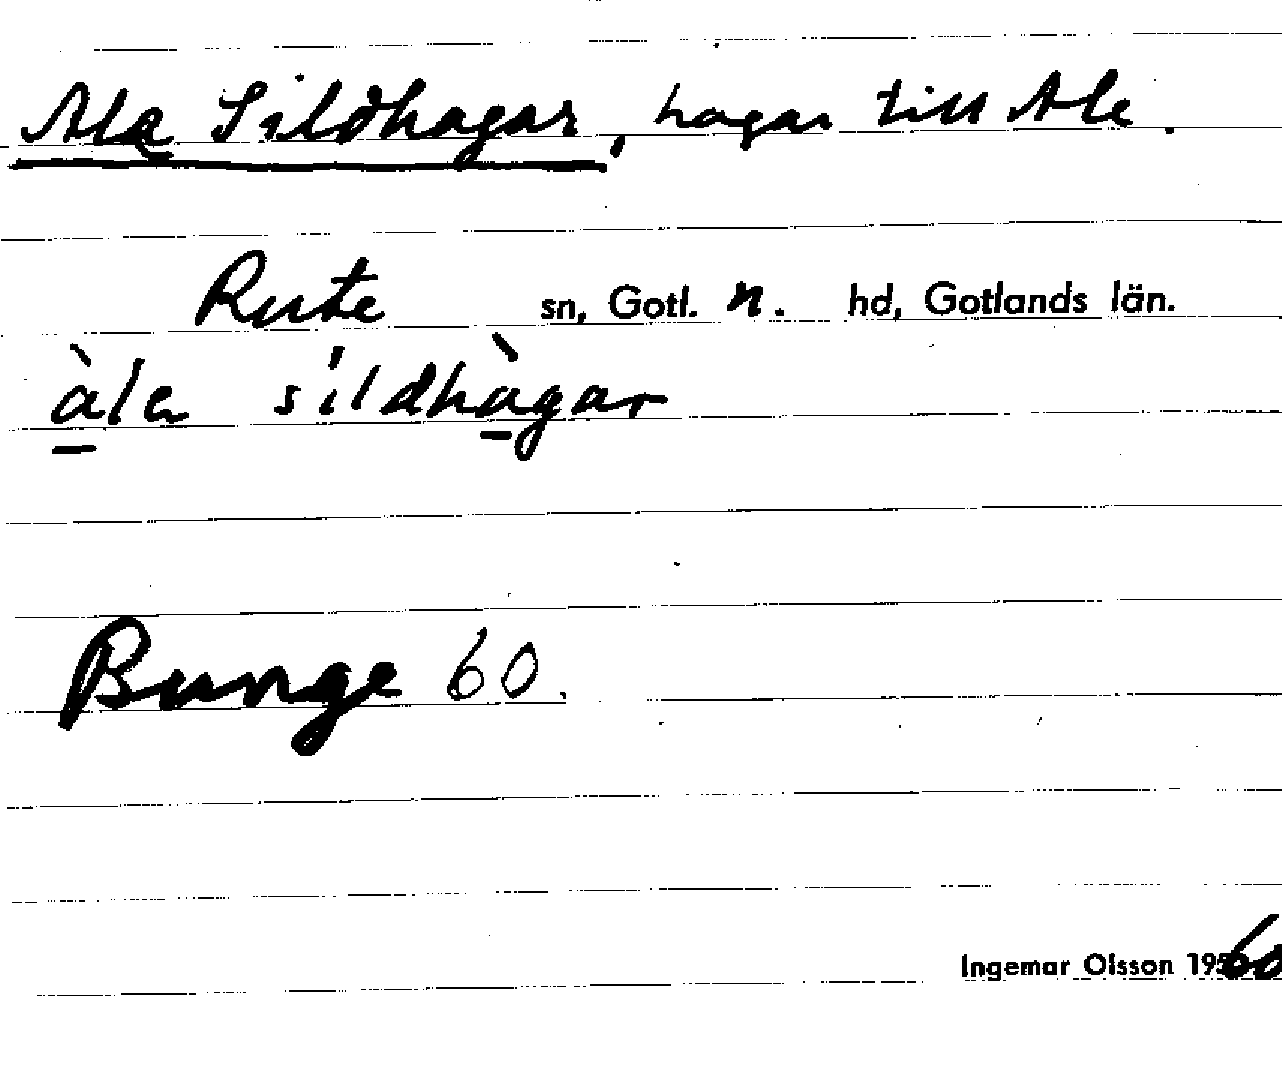 Ala Sildhagar, hagar till Ale.
Rute sn, Gotl. n. hd, Gotlands län.
sildhàgar
Bunge 60.
Ingemar Olsson 1960